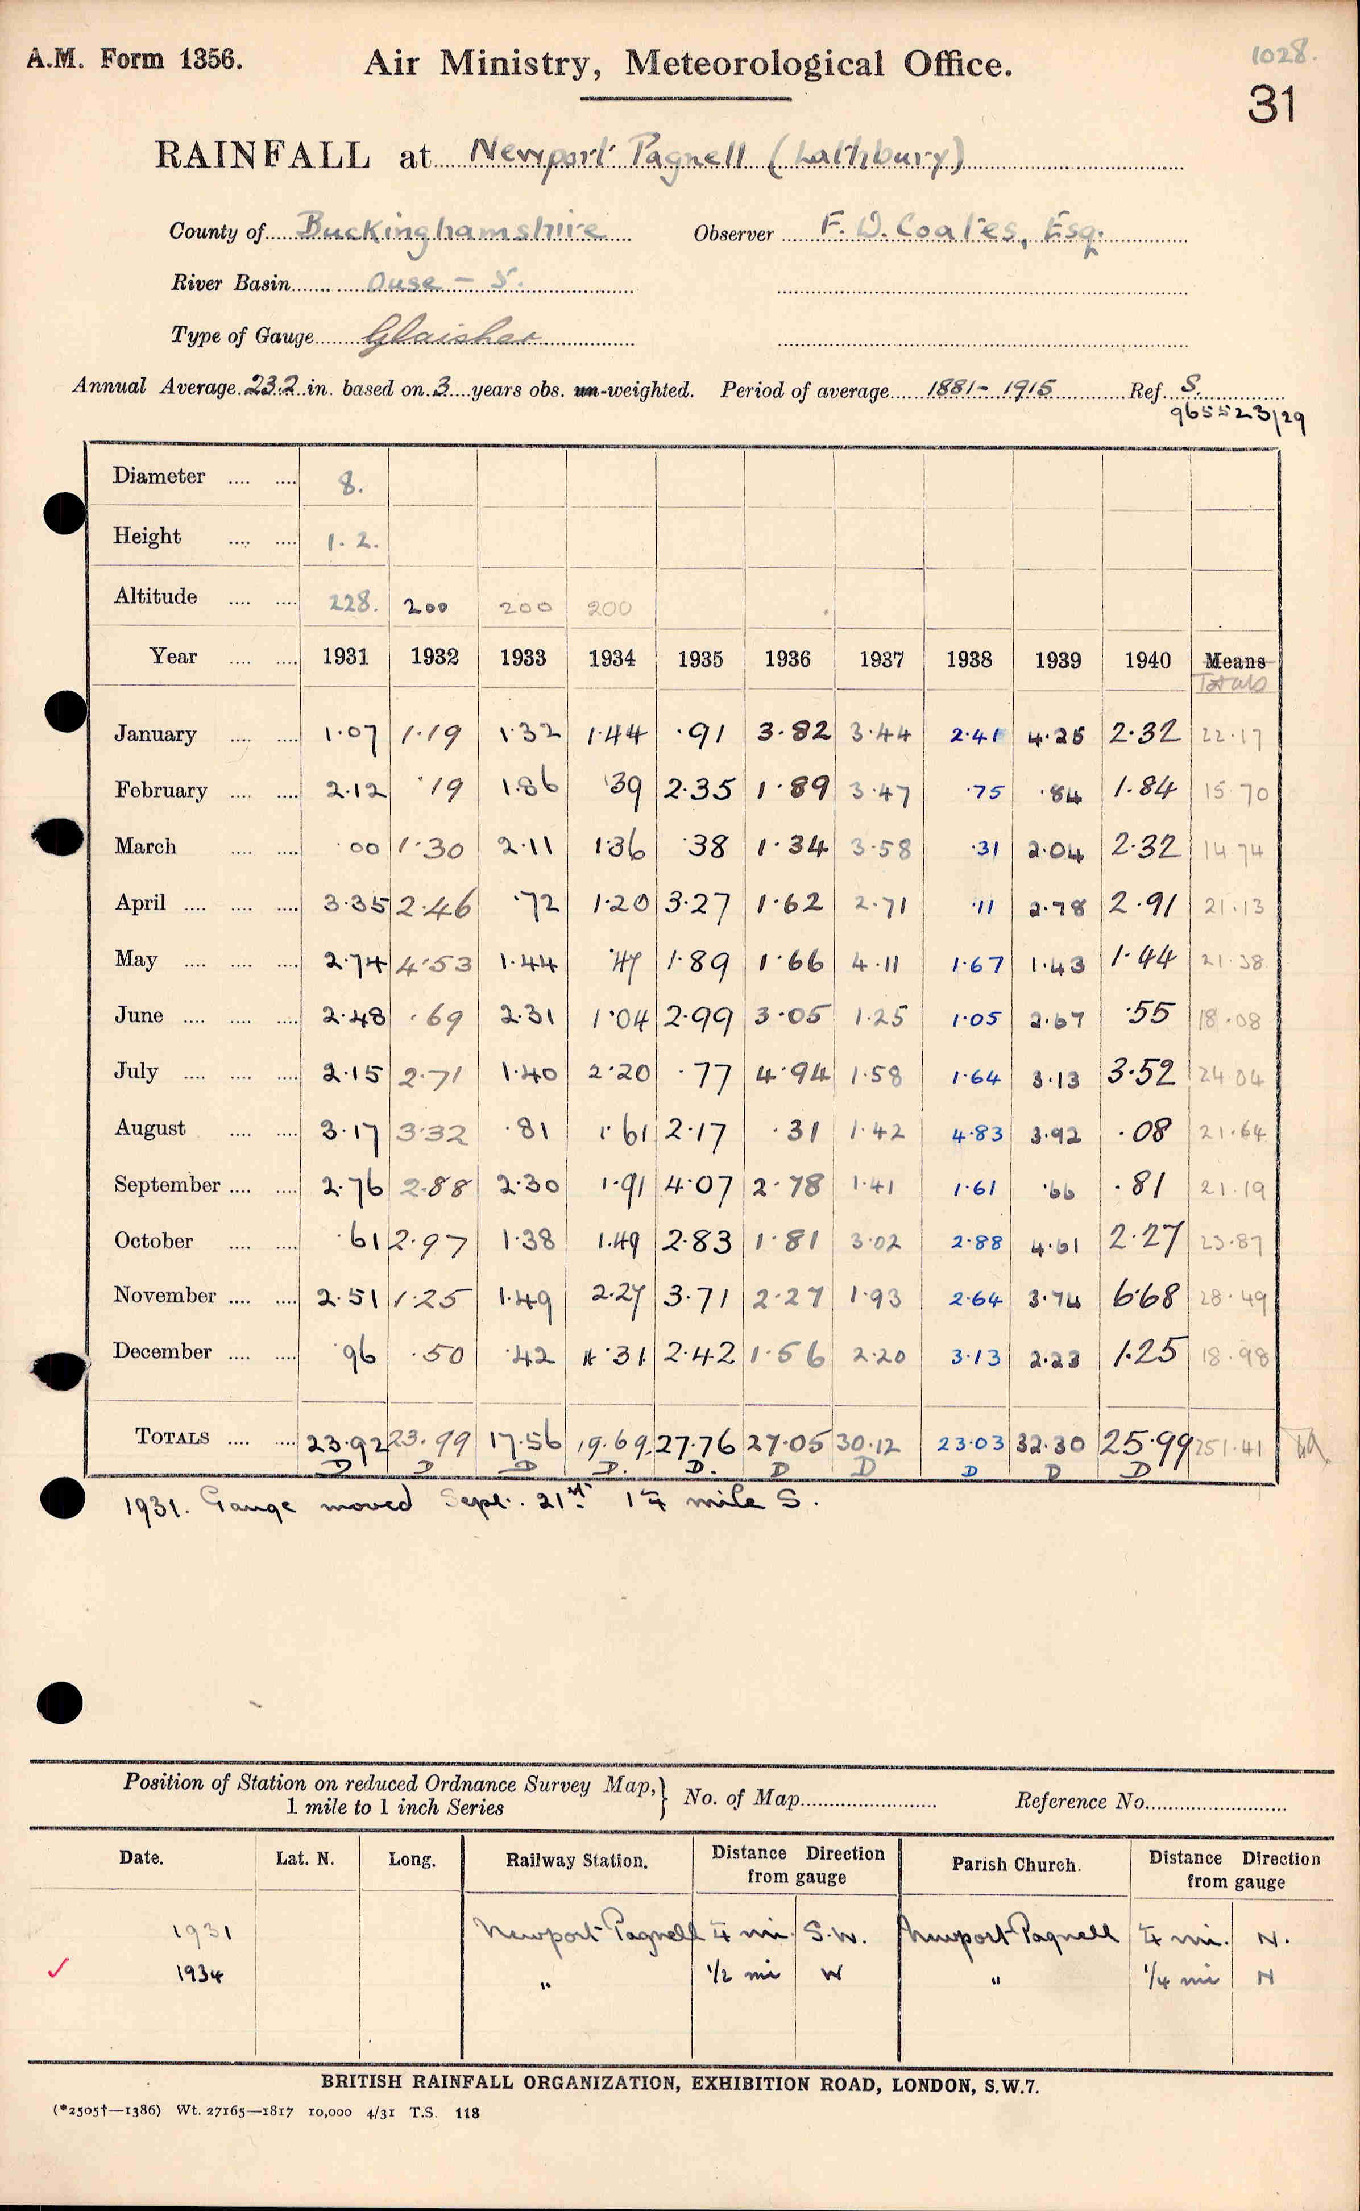 A.M. Form 1356. Air Ministry, Meteorological Office. 1028.
31
RAINFALL at Newport Pagnell (Lathbury)
County of Buckinghamshire Observer F. D. Coales, Esq.
River Basin Ouse - 5.
Type of Gauge Glaisher
Annual Average 23.2 in. based on 3 years obs. un-weighted. Period of average 1881-1915 Ref. S.
965523/29
Diameter 8.
Height 1.2.
Altitude 228. 200 200 200
Year 1931 1932 1933 1934 1935 1936 1937 1938 1939 1940 Means
Totals
January 1.07 1.19 1.32 1.44 .91 3.82 3.44 2.41 4.25 2.32 22.17
February 2.12 .19 1.86 .39 2.35 1.89 3.47 .75 .84 1.84 15.70
March .00 1.30 2.11 1.36 .38 1.34 3.58 .31 2.04 2.32 14.74
April 3.35 2.46 .72 1.20 3.27 1.62 2.71 .11 2.78 2.91 21.13
May 2.74 4.53 1.44 .47 1.89 1.66 4.11 1.67 1.43 1.44 21.38
June 2.48 .69 2.31 1.04 2.99 3.05 1.25 1.05 2.67 .55 18.08
July 2.15 2.71 1.40 2.20 .77 4.94 1.58 1.64 3.13 3.52 24.04
August 3.17 3.32 .81 1.61 2.17 .31 1.42 4.83 3.92 .08 21.64
September 2.76 2.88 2.30 1.91 4.07 2.78 1.41 1.61 .66 .81 21.19
October .61 2.97 1.38 1.49 2.83 1.81 3.02 2.88 4.61 2.27 23.87
November 2.51 1.25 1.49 2.27 3.71 2.27 1.93 2.64 3.74 6.68 28.49
December .96 .50 .42 4.31 2.42 1.56 2.20 3.13 2.23 1.25 18.98
TOTALS 23.92 23.99 17.56 19.69 27.76 27.05 30.12 23.03 32.30 25.99 251.41
D D D D. D. D D D D D
1931. Gauge moved Sept. 21st 1¼ mile S.
Position of Station on reduced Ordnance Survey Map, } No. of Map Reference No.
1 mile to 1 inch Series
Date. Lat. N. Long. Railway Station. Distance Direction from gauge Parish Church. Distance Direction from gauge
1931 Newport Pagnell ¼ mi. S.W. Newport Pagnell ¼ mi. N.
✓ 1934 " 1/2 mi W " 1/4 mi N
BRITISH RAINFALL ORGANIZATION, EXHIBITION ROAD, LONDON, S.W.7.
(*2505†—1386) Wt. 27165—1817 10,000 4/31 T.S. 118